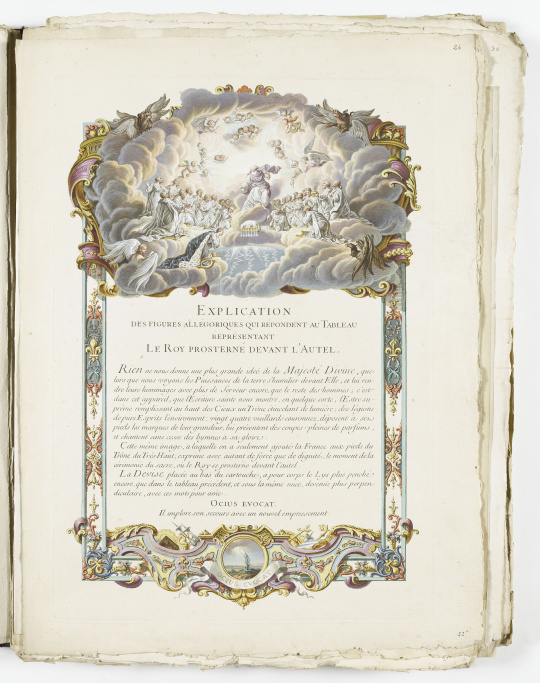 24
EXPLICATION
DES FIGURES ALLEGORIQUES QUI REPONDENT AU TABLEAU
REPRESENTANT
LE ROY PROSTERNÉ DEVANT L'AUTEL.
RIEN ne nous donne une plus grande idée de la Majesté Divine, que
lors que nous voyons les Puissances de la terre s'humilier devant Elle, et lui ren-
dre leurs hommages avec plus de ferveur encore, que le reste des hommes; c'est
dans cet appareil, que l'Ecriture sainte nous montre, en quelque sorte, l'Estre su-
prême remplissant au haut des Cieux un Trône étincelant de lumiere; des legions
d'Esprits l'environnent; vingt quatre vieillards couronnez, déposent à ses
pieds les marques de leur grandeur, lui présentent des coupes pleines de parfums,
et chantent sans cesse des hymnes à sa gloire.
Cette même image, a laquelle on a seulement ajouté la France aux pieds du
Trône du Très Haut, exprime avec autant de force que de dignité, le moment de la
ceremonie du sacre, où le Roy se prosterne devant l'autel.
LA DEVISE placée au bas du cartouche, a pour corps le Lys plus penché
encore, que dans le tableau précédent, et sous la même nuée, devenue plus perpen-
diculaire, avec ces mots pour ame
OCIUS EVOCAT.
Il implore son secours avec un nouvel empressement
OCIUS EVOCAT